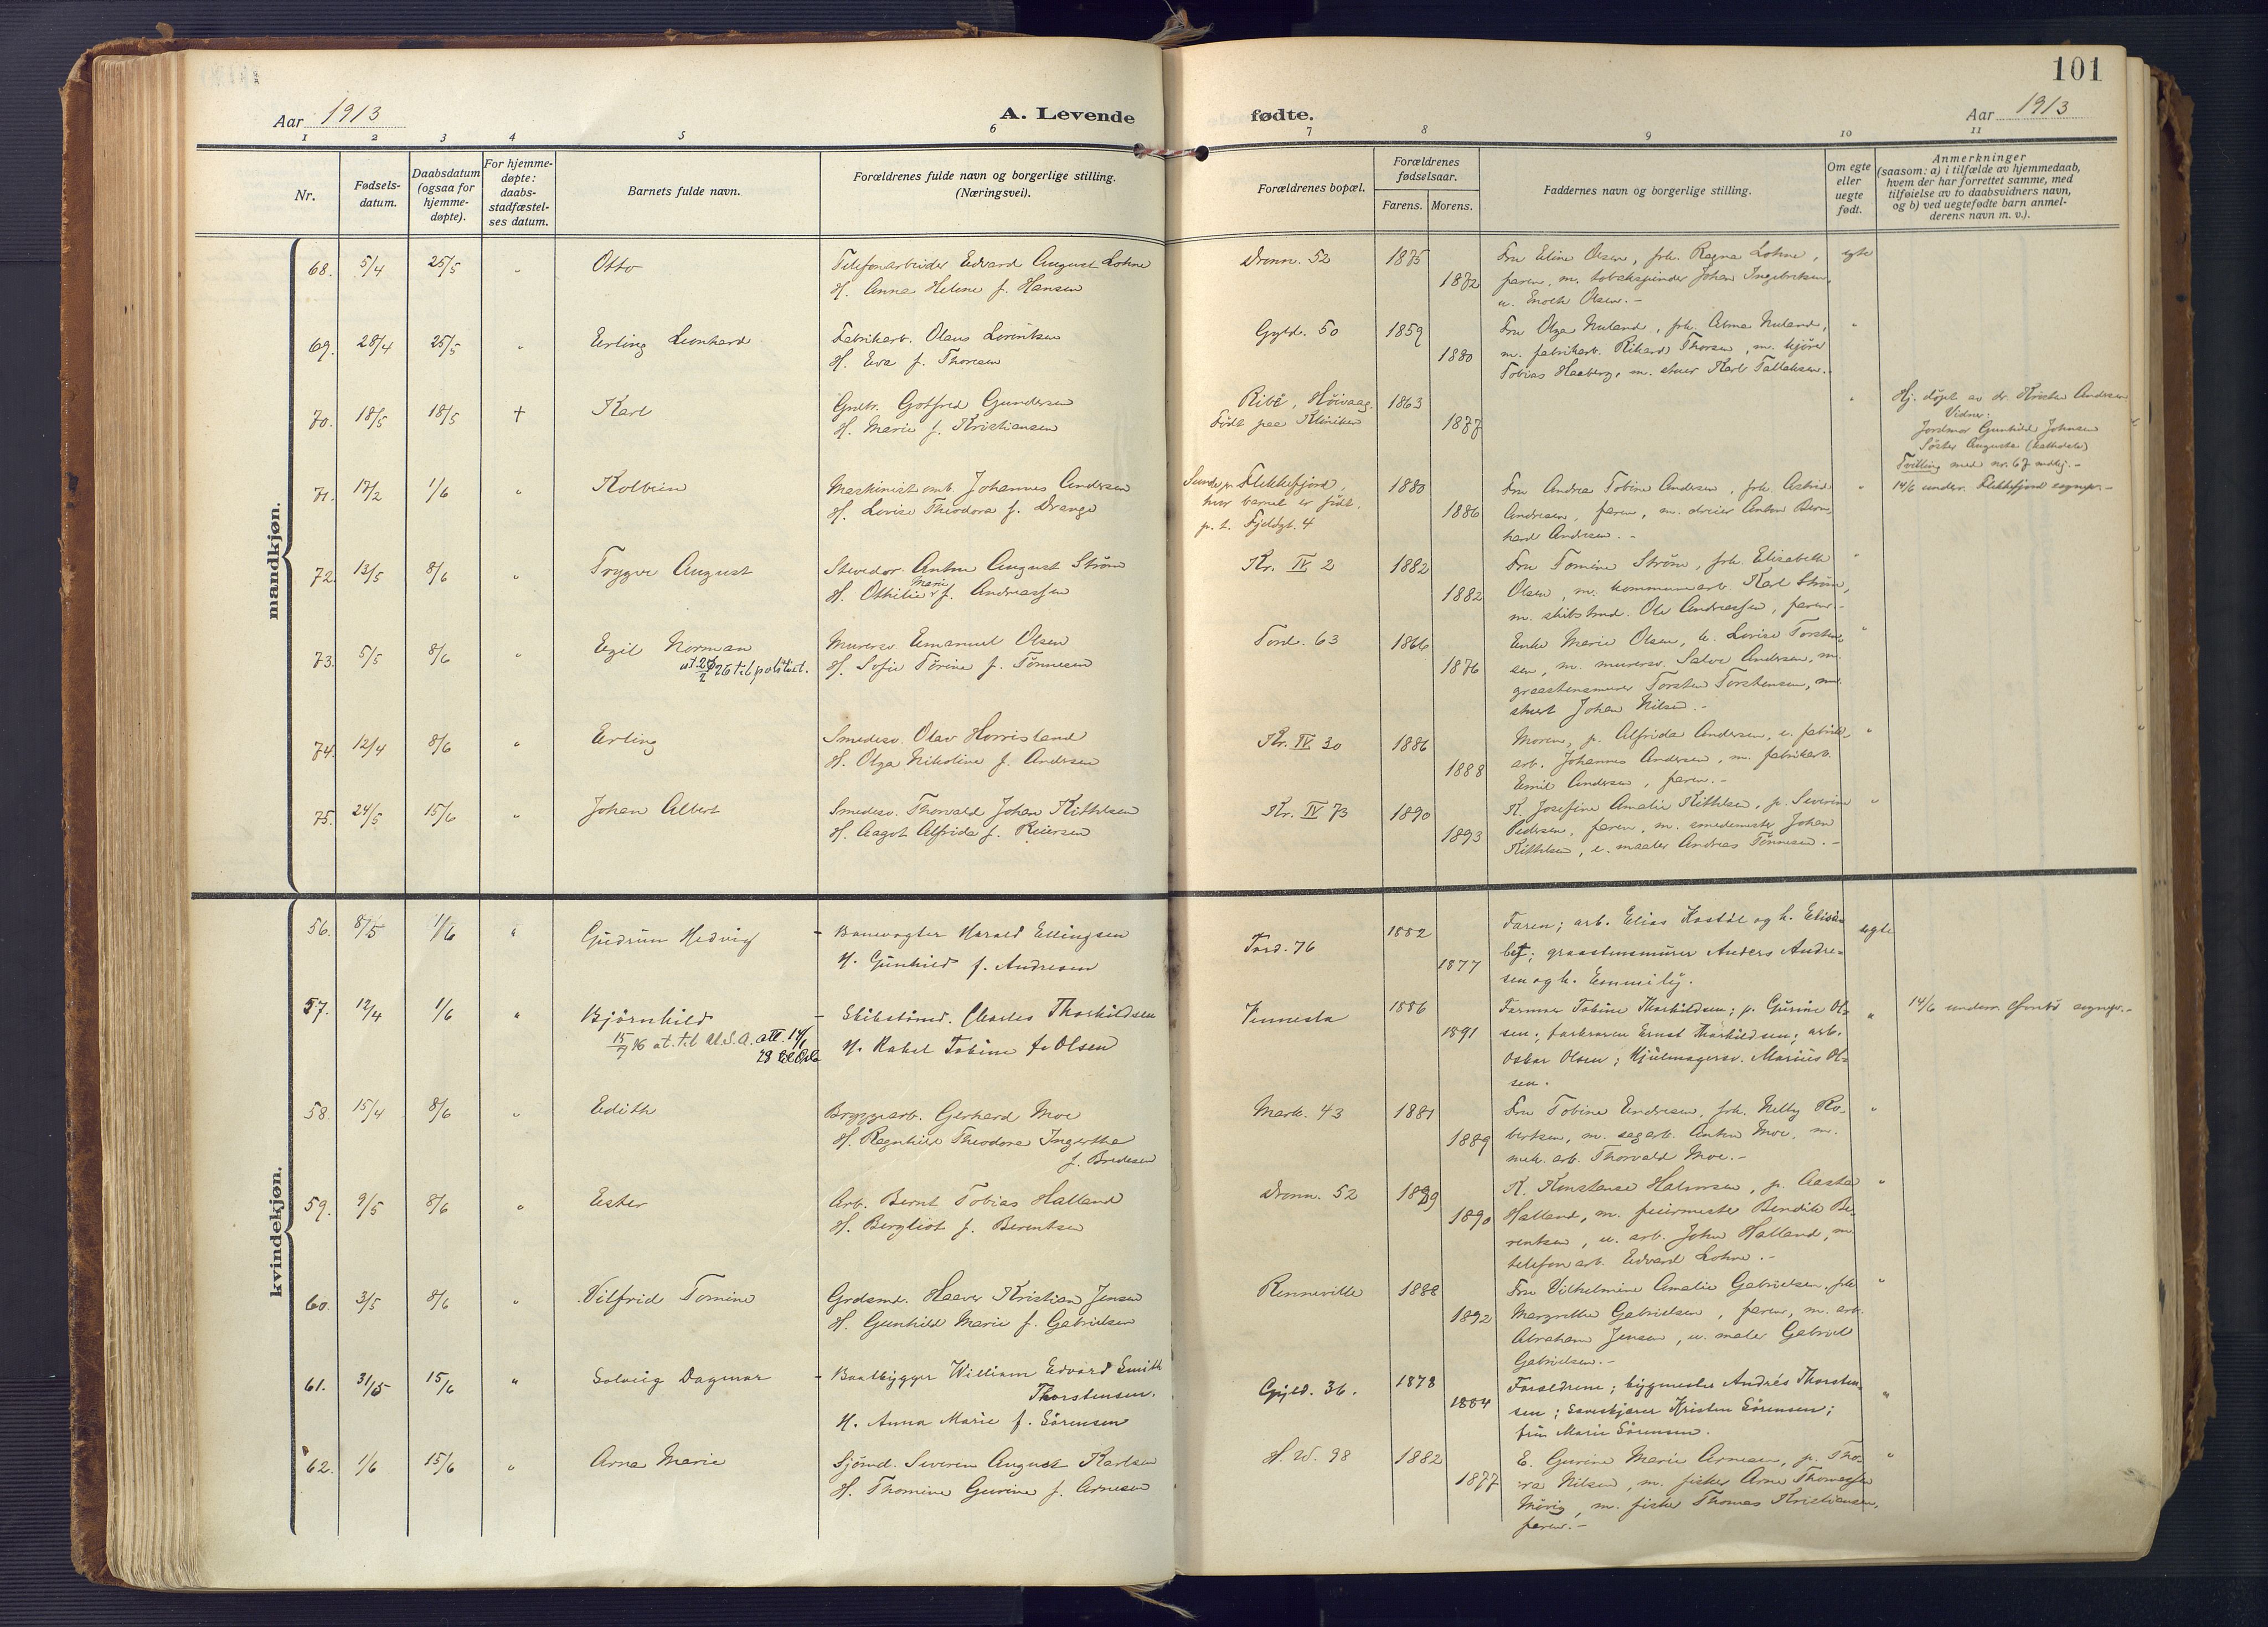 101
Aar 1913
A. Levende
fødte.
Aar 1913
1 2 3 4 5 6 7 8 9 10 11
Nr.
Fødsels-
datum.
Daabsdatum
(ogsaa for
hjemme-
døpte).
For hjemme-
døpte:
daabs-
stadfæstel-
ses datum.
Barnets fulde navn.
Forældrenes fulde navn og borgerlige stilling.
(Næringsvei).
Forældrenes bopæl.
Forældrenes
fødselsaar.
Farens. Morens.
Faddernes navn og borgerlige stilling.
Om egte
eller
uegte
født.
Anmerkninger
(saasom: a) i tilfælde av hjemmedaab,
hvem der har forrettet samme, med
tilføielse av to daabsvidners navn,
og b) ved uegtefødte barn anmel-
derens navn m. v.).
mandkjøn.
68. 5/4 25/5 " Otto
Telefonarbeider Edvard August Lohne
H. Anna Helene f. Hansen
Dronn. 52 1875 1872
Fru Eline Olsen, frk. Ragna Lohne,
faren, m. tobakspinder Johan Ingebretsen,
u. Enoch Olsen.-
egte
69. 28/4 25/5 " Erling Leonhard
Fabrikarb. Olaus Lorentsen
H. Eva f. Thorsen
Gyld. 50 1859 1880
Fru Olga Nuland, frk. Alma Nuland,
m. fabrikarb. Rikard Thorsen, m. kjører
Tobias Haaberg, m. stuer Karl Tallaksen.-
"
70. 18/5 18/5 † Karl
Grdbr. Gotfred Gundersen
H. Marie f. Kristiansen
Ribe, Høivaag.
Født paa Kliniken
1863 1877
"
Hj. døpt av dr. Kristen Andersen
Vidner:
Jordmor Gunhild Johnsen
Søster Augusta (katholsk)
Tvilling med nr. 67 mdkj.-
71. 17/2 1/6 " Kolbein
Maskinist omb. Johannes Andersen
H. Lovise Theodora f. Drange
Sunde pr. Flekkefjord,
hvor barnet er født.
p. t. Fjeldgt. 4
1880 1886
Fru Andrea Tobine Andersen, frk. Astrid
Andresen, faren, m. dreier Anton Bern-
hard Andresen.-
"
14/6 underr. Flekkefjord sognepr.-
72. 13/5 8/6 " Trygve August
Stevedor. Anton August Strøm
H. Othilie Marie f. Andreassen
Kr. IV 2 1882 1882
Fru Tomine Strøm, frk. Elisabeth
Olsen, m. kommunearb. Karl Strøm,
m. skibstmd. Ole Andreassen, faren.-
"
73. 5/5 8/6 " Egil Norman
at. 25/2 26 til politiet.
Murersv. Emanuel Olsen
H. Sofie Tørine f. Tønnesen
Tord. 63 1866 1876
Enke Marie Olsen, u. Lovise Torsten-
sen, m. murersv. Salve Andersen, m.
graastensmurer Torsten Torstensen, m.
stuert Johan Nilsen.-
"
74. 12/4 8/6 " Erling
Smedesv. Olav Horrisland
H. Olga Nikoline f. Andersen
Kr. IV. 30 1886 1888
Moren, p. Alfrida Andersen, u. fabrik-
arb. Johannes Andersen, m. fabrikarb.
Emil Andersen, faren.-
"
75. 24/5 15/6 " Johan Albert
Smedesv. Thorvald Johan Kittelsen
H. Aagot Alfrida f. Reiersen
Kr. IV 73 1890 1893
K. Josefine Amalie Kittelsen, p. Severine
Pedersen, faren, m. smedemester Johan
Kittelsen, u. maaler Andreas Tønnesen.-
"
kvindekjøn.
56. 8/5 1/6 " Gudrun Hedvig
- Banevogter Harald Ellingsen
H. Gunhild f. Andresen
Tord. 76 1882 1877
Faren; arb. Elias Kostøl og h. Elisa-
bet; graastensmurer Anders Andre-
sen og h. Emmily.
egte
57. 12/4 1/6 " Bjørnhild
15/7 46 at. til U.S.A. att. 14/1
- Skibstømd. Charles Thorkildsen
H. Rakel Tobine f. Olsen
Vennesla 1886 1891
Farmor Tobine Thorkildsen; p. Gurine Ol-
sen; farbroren Ernst Thorkildsen; arb.
Oskar Olsen; Hjulmagersv. Marius Ol-
sen.
"
14/6 underr. sognepr.-
58. 15/4 8/6 " Edith
Bryggearb. Gerhard Moe
H. Ragnhild Theodora Ingertha
f. Bredesen
Mark. 43 1881 1889
Fru Tobine Endresen, frk. Nelly Ro-
bertsen, m. sagarb. Anton Moe, m.
mek. arb. Thorvald Moe.-
"
59. 9/5 8/6 " Ester
Arb. Bernt Tobias Halland
H. Bergliot f. Berentsen
Dronn. 52 1889 1890
K. Konstanse Halvorsen, p. Aasta
Halland, m. feiermester Bendik Be-
rentsen, u. arb. John Halland, m.
telefonarb. Edvard Lohne.-
"
60. 3/5 8/6 " Vilfrid Tomine
Grdsmd. Haaver Kristian Jensen
H. Gunhild Marie f. Gabrielsen
Renneville 1888 1892
Fru Vilhelmine Amalie Gabrielsen, frk.
Margrethe Gabrielsen, faren, m. arb.
Abraham Jensen, u. maler Gabriel
Gabrielsen.-
"
61. 31/5 15/6 " Solveig Dagmar
- Baatbygger William Edvard Smith
Thorstensen.
H. Anna Marie f. Sørensen
Gyld. 36. 1878 1884
Forældrene; bygmester Andrés Thorsten-
sen; Saveskjærer Kristen Sørensen;
fru Marie Sørensen.
"
62. 1/6 15/6 " Arna Marie
Sjømd. Severin August Karlsen
H. Thomine Gurine f. Arnesen
H. W. 98 1882 1877
E. Gurine Marie Arnesen, p. Tho-
ra Nilsen, m. fisker Arne Thomassen
Møvig, m. fisker Thomas Kristiansen,
faren.-
"